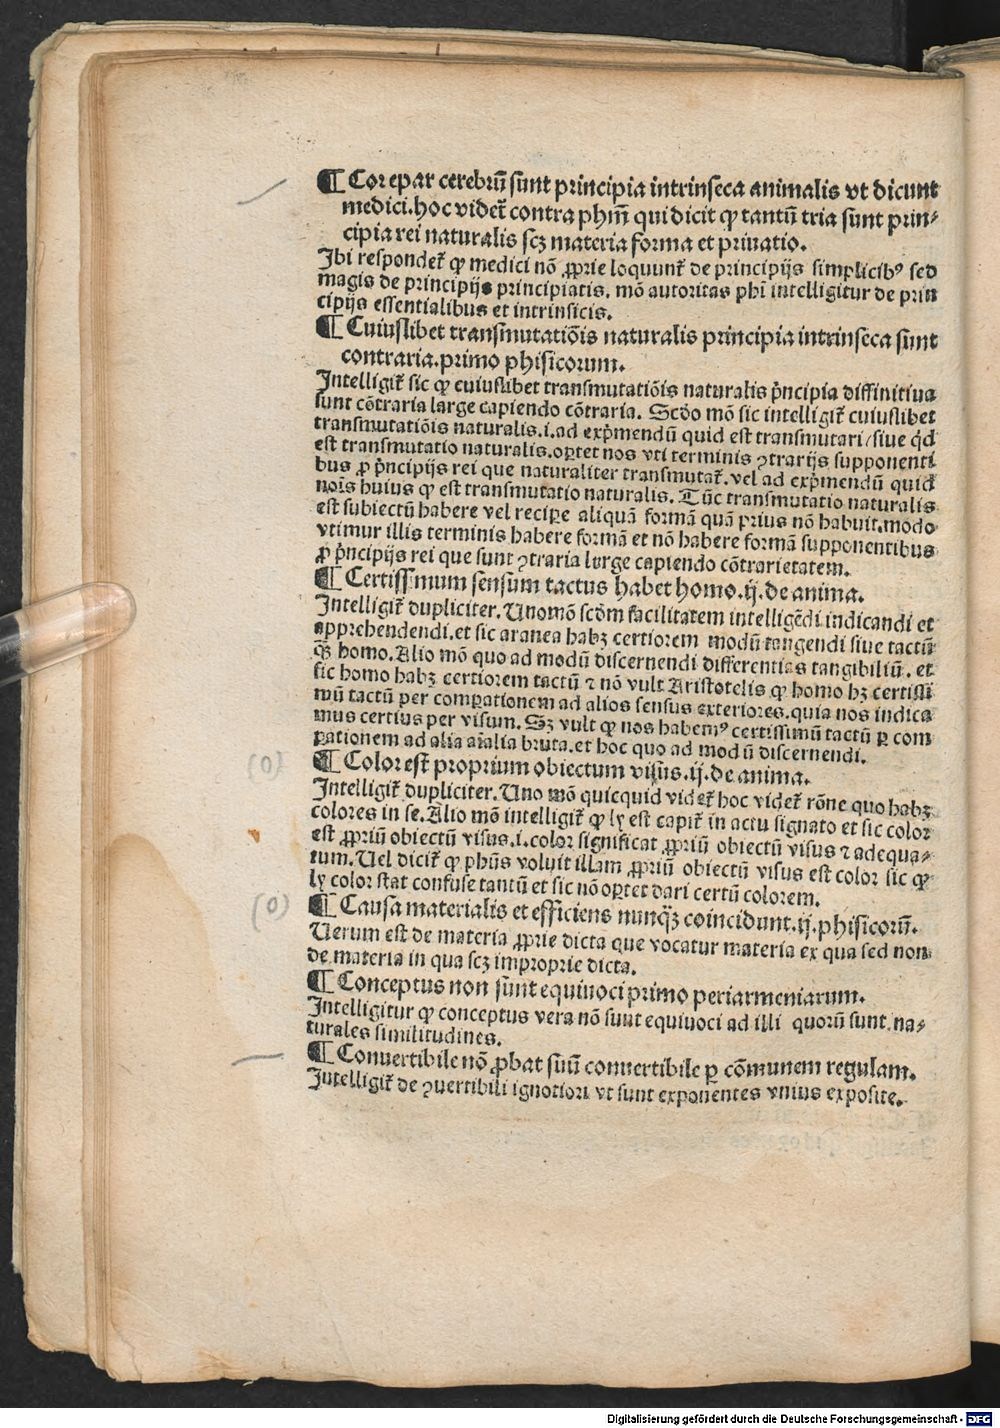 ¶ Cor epar cerebrū sunt principia intrinseca animalis vt dicunt
medici. hoc videt̄ contra phm̄ qui dicit ꝙ tantū tria sunt prin⸗
cipia rei naturalis scꝫ materia forma et priuatio.
Ibi respondet̄ ꝙ medici nō ꝓprie loquunt̄ de principijs simplicibꝰ sed
magis de principijs principiatis. mō autoritas phi̅ intelligitur de prin
cipijs essentialibus et intrinsicis.
¶ Cuiuslibet transmutatiōis naturalis principia intrinseca sunt
contraria. primo phisicorum.
Intelligit̄ sic ꝙ cuiuslibet transmutatiōis naturalis p̄ncipia diffinitiua
sunt cōtraria large capiendo cōtraria. Scd̄o mō sic intelligit̄ cuiuslibet
transmutatiōis naturalis .i. ad exp̄mendū quid est transmutari / siue q̄d
est transmutatio naturalis. oꝑtet nos vti terminis ꝯtrarijs supponenti
bus ꝓ p̄ncipijs rei que naturaliter transmutat̄. vel ad exp̄mendū quid
noīs huius ꝙ est transmutatio naturalis. Tūc transmutatio naturalis
est subiectū habere vel reciꝑe aliquā formā quā prius nō habuit. modo
vtimur illis terminis habere formā et nō habere formā supponentibus
ꝓ p̄ncipijs rei que sunt ꝯtraria large capiendo cōtrarietatem.
¶ Certissimum sensum tactus habet homo. ij. de anima.
Intelligit̄ dupliciter. Uno mō scd̄m facilitatem intelligēdi indicandi et
apprehendendi. et sic aranea habꝫ certiorem modū tangendi siue tactū
qꝫ̄ homo. Alio mō quo ad modū discernendi differentias tangibiliū. et
sic homo habꝫ certiorem tactū ⁊ nō vult Aristotelis ꝙ homo hꝫ certissi
mū tactū per comꝑationem ad alios sensus exteriores. quia nos indica
mus certius per visum. Sꝫ vult ꝙ nos habemꝰ certissimū tactū ꝑ com
ꝑationem ad alia aīalia bruta. et hoc quo ad modū discernendi.
(0) ¶ Color est proprium obiectum visus. ij. de anima.
Intelligit̄ dupliciter. Uno mō quicquid videt̄ hoc videt̄ rōne quo habꝫ
colores in se. Alio mō intelligit̄ ꝙ ly est capit̄ in actu signato et sic color
est ꝓpriū obiectū visus .i. color significat ꝓpriū obiectū visus ⁊ adequa⸗
tum. Uel dicit̄ ꝙ phūs voluit illam ꝓpriū obiectū visus est color sic ꝙ
ly color stat confuse tantū et sic nō oꝑtet dari certū colorem.
(0) ¶ Causa materialis et efficiens nunqꝫ̄ coincidunt. ij. phisicorū.
Uerum est de materia ꝓprie dicta que vocatur materia ex qua sed non
de materia in qua scꝫ improprie dicta.
¶ Conceptus non sunt equiuoci primo periarmeniarum.
Intelligitur ꝙ conceptus vera nō sunt equiuoci ad illi quorū sunt na⸗
turales similitudines.
¶ Conuertibile nō ꝓbat suū conuertibile ꝑ cōmunem regulam.
Intelligit̄ de ꝯuertibili ignotiori vt sunt exponentes vnius exposite.
Digitalisierung gefördert durch die Deutsche Forschungsgemeinschaft - DFG